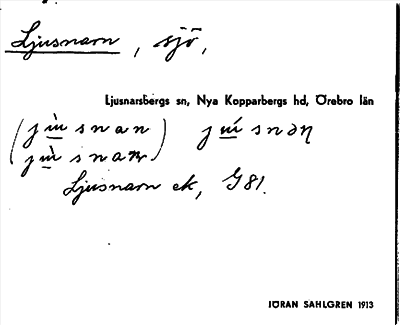 Ljusnarn, sjö,
Ljusnarsbergs sn, Nya Kopparbergs hd, Örebro län
(jùsnan) júsnəɳ
jùsnaɳ
Ljusnarn ek, G 81.
JÖRAN SAHLGREN 1913